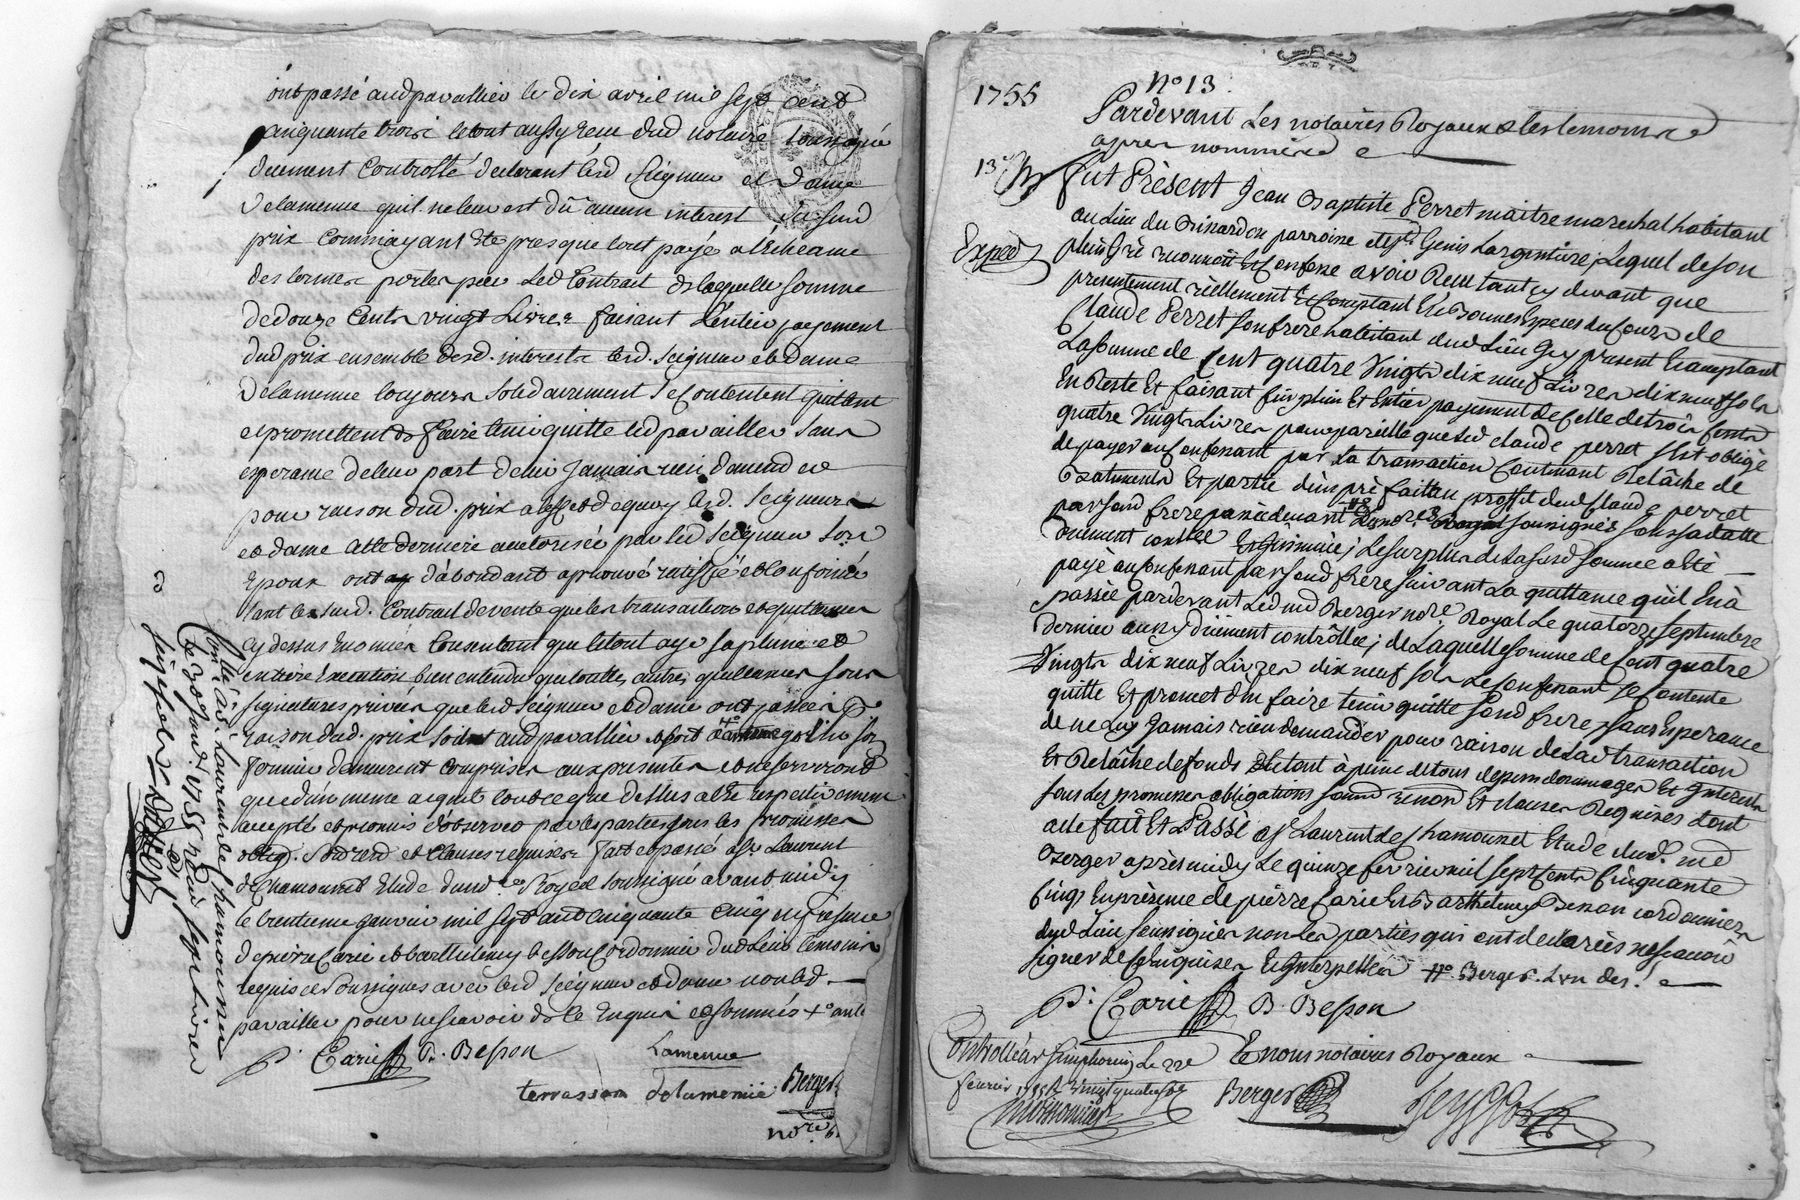 ont passé aud pavallier le dix avril mil sept cent
cinquante trois le tout aussy reçu dud notaire soussigné
duement controllé declarant led Seigneur et Dame
Delamenue quil ne leur est dû aucun interest du susd
prix commayant été presque tout payé a l'écheance
des termes portés par led Contrat de laquelle somme
de douze cents vingt Livres faisant l'entier payement
dud prix ensemble desd. interests lesd. Seigneur et dame
Delamenue toujours solidairement se contentent quittent
et promettent de faire tenir quitte led pavallier sans
esperance de leur part de luy jamais rien demander
pour raison dud. prix a l'effet de quoy lesd. Seigneurs
et dame cette derniere authorisée par led Seigneur son
Epoux ont d'abondant aprouvé ratiffié et confirmé
tant le susd. Contrat de vente que les transactions et quittances
cy dessus enoncés consentant que le tout aye sa pleine et
entiere Execution bien entendu que toutes autres quittances sous
signatures privées que lesd Seigneur et dame ont passées pr
raison dud. prix soit aud pavallier
fermier demeurent comprises aux presentes et ne serviront
que d'un meme acquit tout ce que dessus a été respectivement
accepté et promis d'observer par les parties sous les promesses
oblig. et clauses requises fait et passé a St Laurent
de Chamousset Etude dud no.re Royal soussigné avant midy
le trentieme janvier mil sept cent cinquante cinq en presence
de pierre Carie et barthelemy besson Cordonnier dud Lieu temoins
requis et soussignés avec lesd Seigneur et dame non led.
pavallier pour ne sçavoir de ce Enquis et sommés
p. Carie B. Besson
Lamenue
terrasson delamenue Berger
no.re
Con.lé à St Laurent de chamousset
le 30 Janv. 1755 reçu sept livres
1755
N° 13
Pardevant Les notaires Royaux & les temoins
apres nommés
13e
Exped
Fut Présent Jean Baptiste Perret maitre marechal habitant
au Lieu du Crisardon parroisse de St Genis Largentiere, Lequel de son
plein gré reconnoit et confesse avoir Receu tant cy devant que
presentement réellement et comptant En Bonnes Especes du Cours de
Claude Perret son frere habitant dud Lieu Icy present Et acceptant
La somme de Cent quatre Vingts dix neuf Livres dix neuf sols
En Reste Et faisant fin plein Et Entier payement de Celle de trois Cents
quatre Vingts Livres pour pareille que led claude perret s'est obligé
de payer au confessant par La transaction Contenant Relâche de
Batiments Et partie d'un prè fait au proffit dud Claude perret
par sond frere passée devant soussignés sous sa datte
duement contrlée Et insinuée; Le surplus de Lasusd somme a été
payé au Confessant par sond frère suivant La quittance qu'il En a
passée pardevant Led me Berger no.re Royal Le quatorze septembre
dernier aussy düement contrôllée; de Laquelle somme de Cent quatre
Vingts dix neuf Livres dix neuf sols Le Confessant se Contente
quitte Et promet d'en faire tenir quitte sond frere, sans Esperance
de ne Luy Jamais rien demander pour raison de Lad transaction
Et Relâche de fonds Le tout à peine de tous depens dommages Et Interests
sous Les promesses obligations renon Et clauses Requises dont
acte fait Et Passé a St Laurent de Chamousset Etude dud. me
Berger après midy Le quinze fevrier mil sept Cents Cinquante
Cinq En présence de pierre Carie Et Barthelemy Besson cordonniers
dud Lieu soussignés non Les parties qui ont declarées ne sçavoir
signer de Ce Enquises Et Interpellées
p. Carie B. Besson
Controllé a St Simphorien Le 22e
fevrier 1755 R. vingt quatre sols
Et nous notaires Royaux
Berger